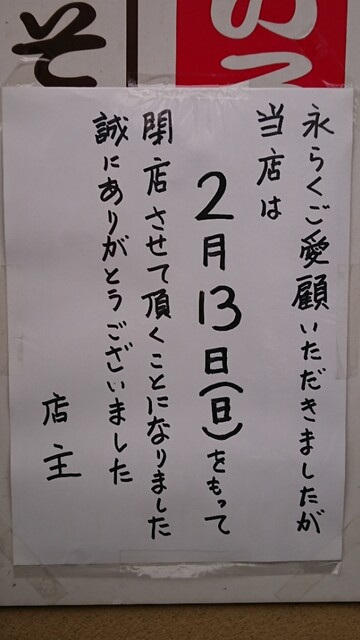 永らくご愛顧いただきましたが
当店は
2月13日(日)をもって
閉店させて頂くことになりました
誠にありがとうございました
店主
そ
の